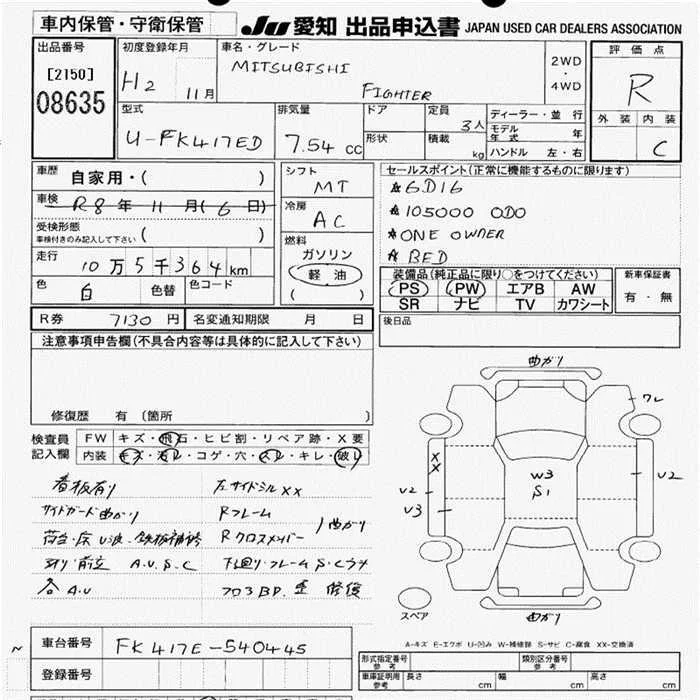 車内保管・守衛保管
JU 愛知 出品申込書 JAPAN USED CAR DEALERS ASSOCIATION
出品番号
[2150]
08635
初度登録年月
H2 11月
車名・グレード
MITSUBISHI
FIGHTER
2WD
・
4WD
評価点
R
外装 内装
C
型式
U-FK417ED
排気量
7.54 cc
ドア
形状
定員
3人
積載
kg
ディーラー・並行
モデル年式 年
ハンドル 左・右
車歴
自家用・( )
車検
R8年11月(6日)
受検形態
車検付きのみ記入して下さい ( )
走行
10万5千364km
色 白 色替 色コード
シフト
MT
冷房
AC
燃料
ガソリン
軽油
( )
セールスポイント(正常に機能するものに限ります)
☆6D16
☆105000 ODO
☆ONE OWNER
☆BED
装備品(純正品に限り○をつけてください)
PS PW エアB AW
SR ナビ TV カワシート
新車保証書
有・無
R券 7130円 名変通知期限 月 日
後日品
注意事項申告欄(不具合内容等は具体的に記入して下さい)
修復歴 有(箇所 )
検査員記入欄
FW キズ・飛石・ヒビ割・リペア跡・X要
内装 キズ・汚レ・コゲ・穴・スレ・キレ・破レ
看板有り 左サイドシルXX
サイドガード曲がり Rフレーム
荷台・床 U波・鉄板補修 Rクロスメンバー )曲がり
A.U.S.C 下廻り・フレームS.Cラナ
各A.U フロアBD.歪 修復
曲がり
ワレ
XX
U2
U3
W3
S1
U2
曲がり
スペア
A-キズ E-エクボ U-凹み W-補修跡 S-サビ C-腐食 XX-交換済
車台番号 FK417E-540445
登録番号
形式指定番号参考
類別区分番号参考
車庫証明用参考 長さ cm 幅 cm 高さ cm